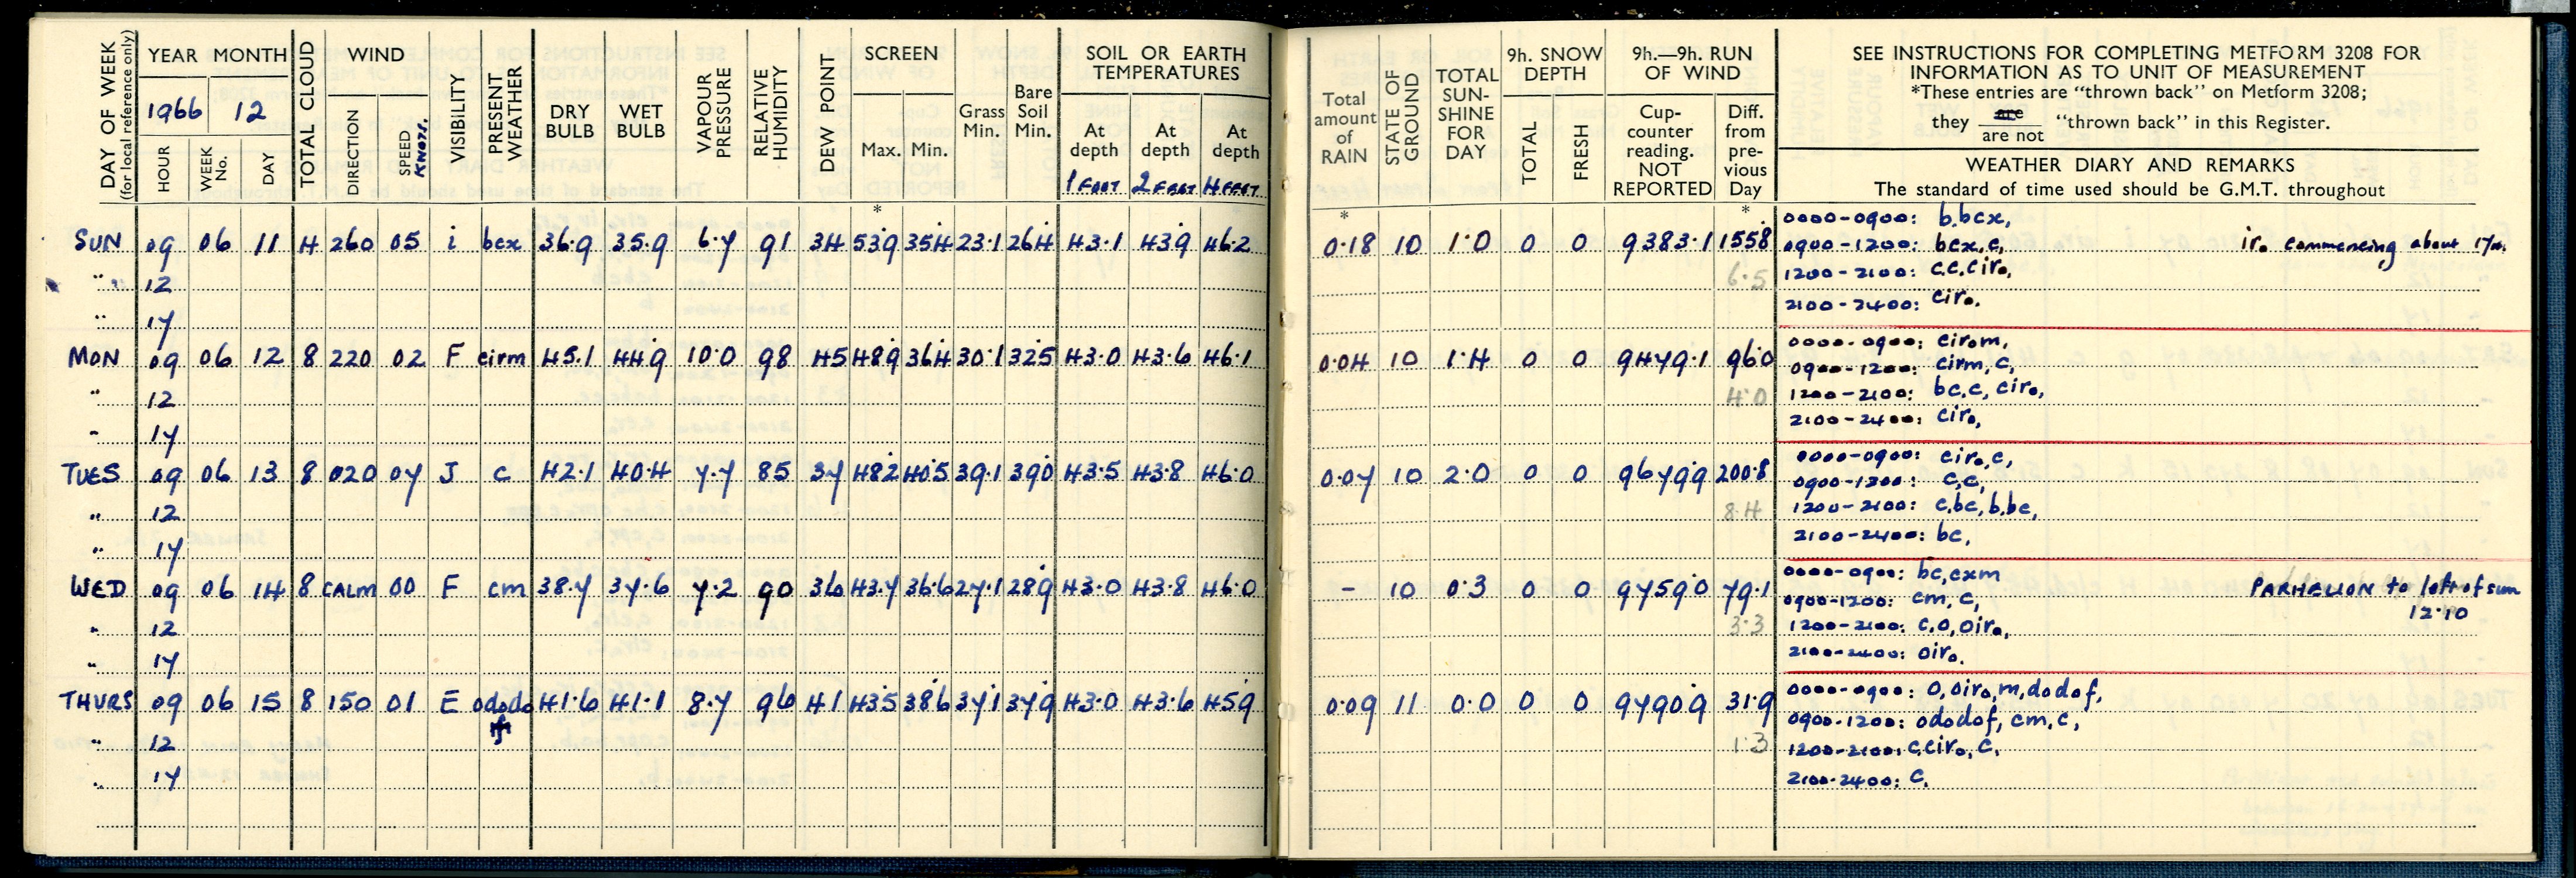 DAY OF WEEK (for local reference only) YEAR MONTH TOTAL CLOUD WIND VISIBILITY PRESENT WEATHER DRY BULB WET BULB VAPOUR PRESSURE RELATIVE HUMIDITY DEW POINT SCREEN Grass Min. Bare Soil Min. SOIL OR EARTH TEMPERATURES
1966 12
HOUR WEEK No. DAY DIRECTION SPEED KNOTS. Max. Min. At depth At depth At depth
1 FOOT 2 FEET 4 FEET
*
SUN 09 06 11 4 260 05 i bcx 36.9 35.9 6.7 91 34 53.9 35.4 23.1 26.4 43.1 43.9 46.2
" 12
" 17
MON 09 06 12 8 220 02 F cirm 45.1 44.9 10.0 98 45 48.9 36.4 30.1 32.5 43.0 43.6 46.1
" 12
" 17
TUES 09 06 13 8 020 07 J c 42.1 40.4 7.7 85 37 48.2 40.5 39.1 39.0 43.5 43.8 46.0
" 12
" 17
WED 09 06 14 8 CALM 00 F cm 38.7 37.6 7.2 90 36 43.7 36.6 27.1 28.9 43.0 43.8 46.0
" 12
" 17
THURS 09 06 15 8 150 01 E ododo 41.6 41.1 8.7 96 41 43.5 38.6 37.1 37.9 43.0 43.6 45.9
" 12
" 17
Total amount of RAIN STATE OF GROUND TOTAL SUN-SHINE FOR DAY 9h. SNOW DEPTH 9h.—9h. RUN OF WIND
TOTAL FRESH Cup-counter reading. NOT REPORTED Diff. from pre-vious Day
SEE INSTRUCTIONS FOR COMPLETING METFORM 3208 FOR
INFORMATION AS TO UNIT OF MEASUREMENT
*These entries are "thrown back" on Metform 3208;
they are
are not "thrown back" in this Register.
WEATHER DIARY AND REMARKS
The standard of time used should be G.M.T. throughout
* *
0.18 10 1.0 0 0 9383.1 155.8
6.5
0000-0900: b.bcx,
0900-1200: bcx,c, iro commencing about 17
1200-2100: c.c,ciro,
2100-2400: ciro.
0.04 10 1.4 0 0 9479.1 96.0
4.0
0000-0900: cirom,
0900-1200: cirm, c,
1200-2100: bc,c, ciro,
2100-2400: ciro,
0.07 10 2.0 0 0 9679.9 200.8
8.4
0000-0900: ciro,c,
0900-1200: c,c,
1200-2100: c,bc, b,bc,
2100-2400: bc,
- 10 0.3 0 0 9759.0 79.1
3.3
0000-0900: bc,cxm
0900-1200: cm, c,
1200-2100: c,o,oiro,
2100-2400: oiro.
PARHELION to left of sun
12.10
0.09 11 0.0 0 0 9790.9 31.9
1.3
0000-0900: o,oiro,m,dodof,
0900-1200: ododof, cm,c,
1200-2100: c,ciro, c.
2100-2400: c.